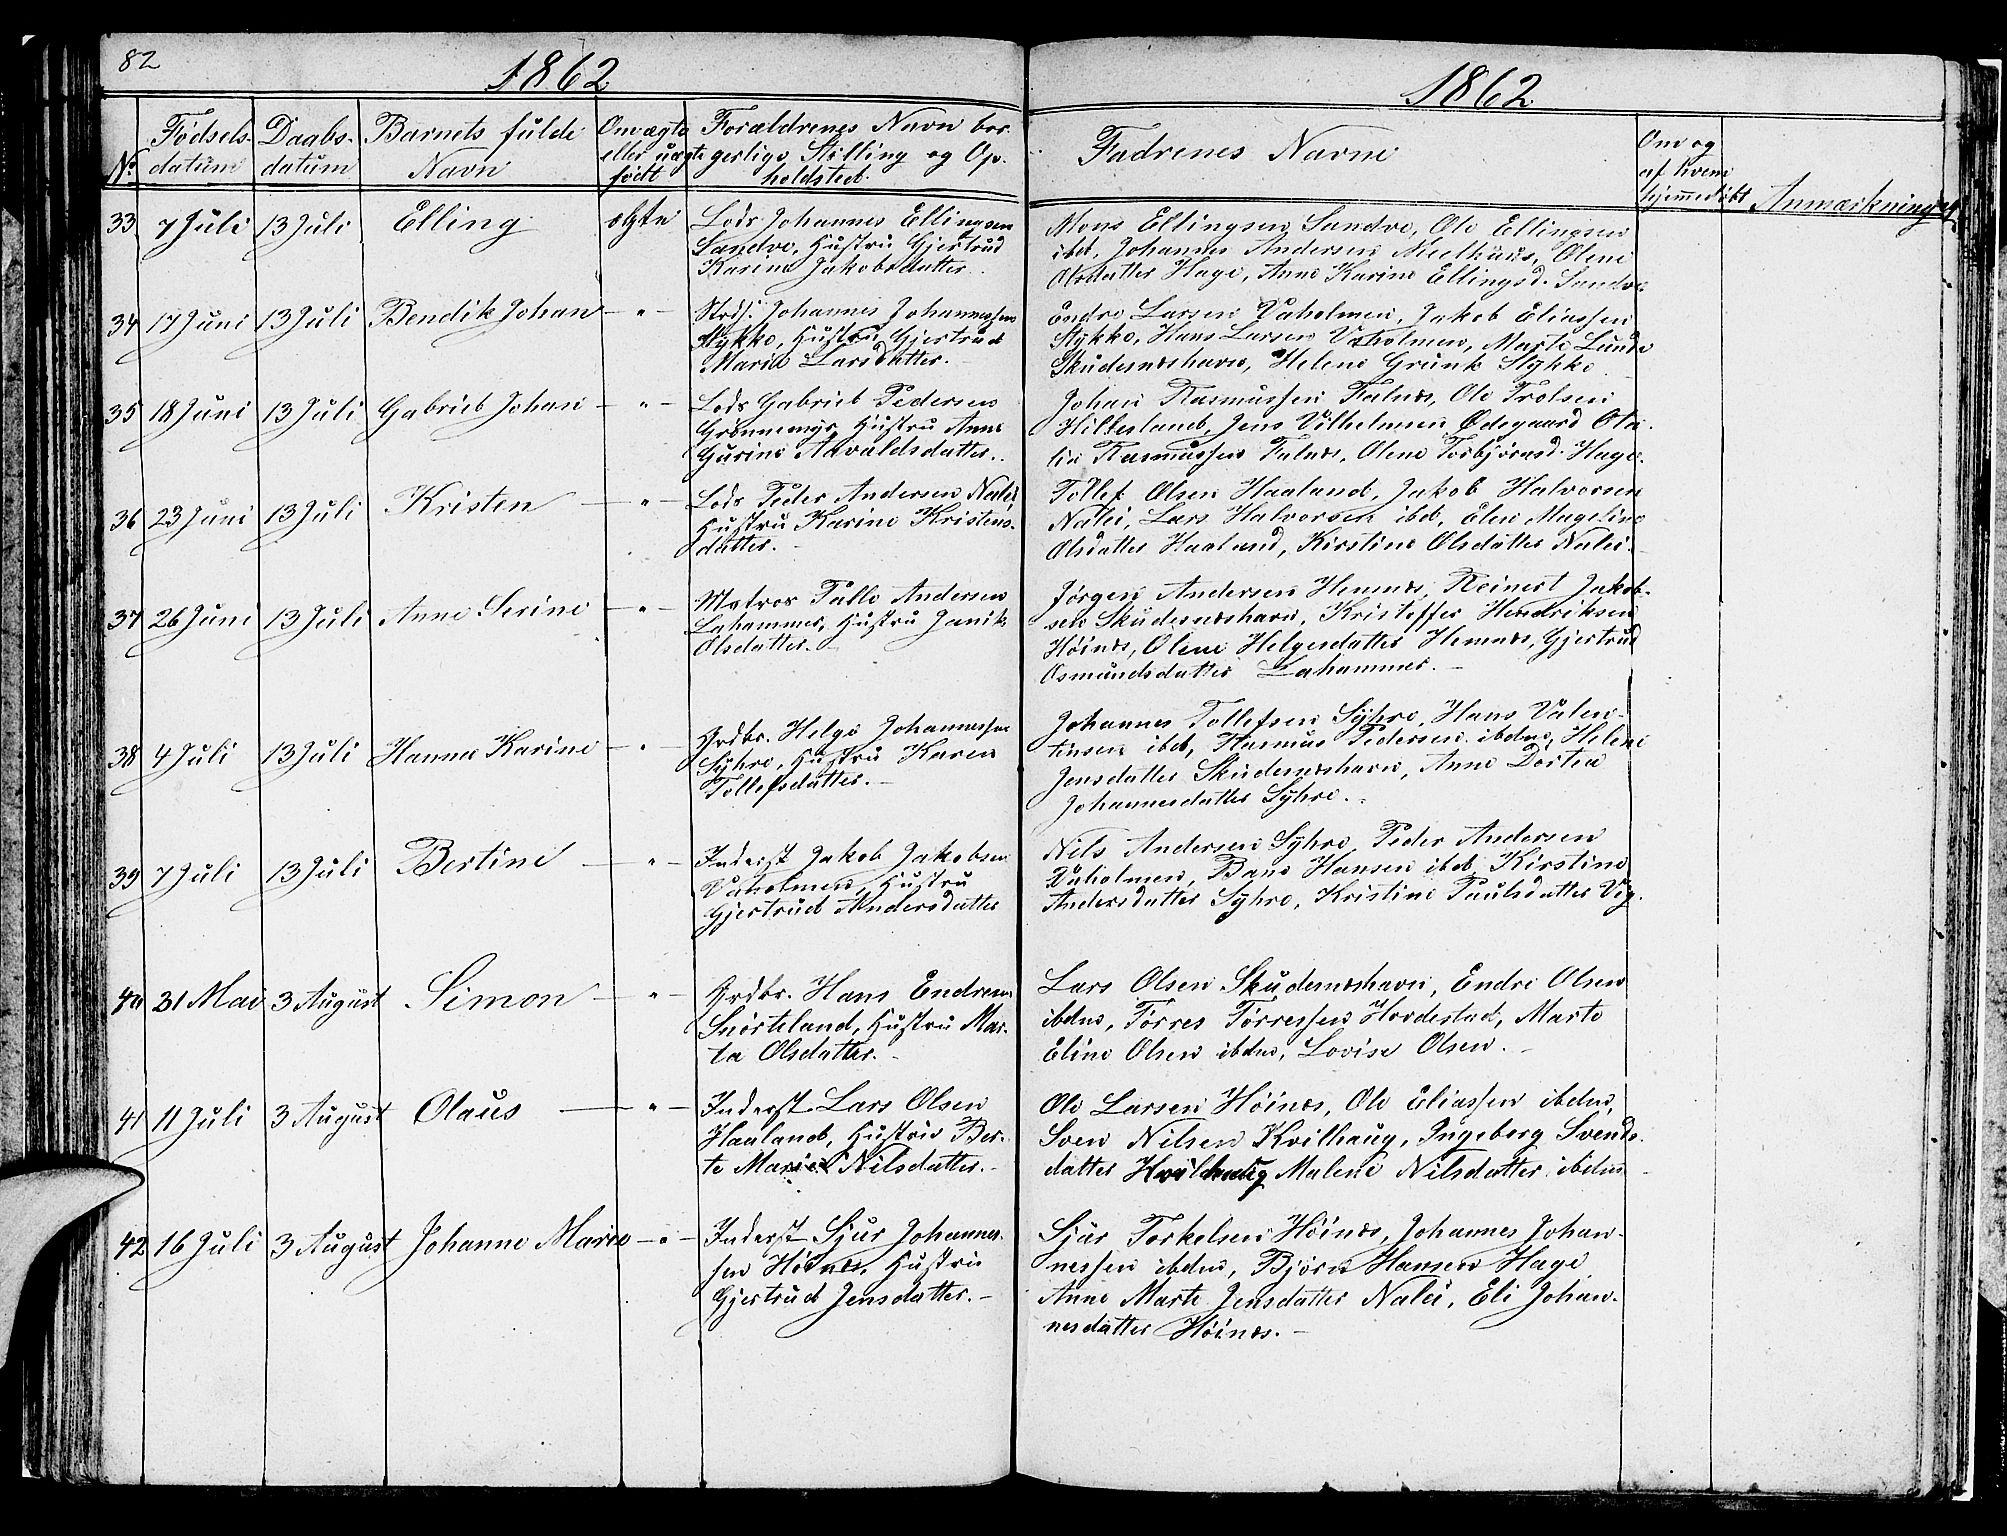 82
1862
1862
Fødsels- Daabs- Barnets fulde Om ægte Forældrenes Navn bor
No datum datum Navn eller uægte gerlige Stilling og Op-
født holdsted.
Fadrenes Navne
Om og
af hvem
hjemmedøbt
Anmærkninger
33 7 Juli 13 Juli Elling ægte Lods Johannes Ellingsen
Sandve, Hustru Gjertrud
Karine Jakobsdatter.
Mons Ellingsen Sandve, Ole Ellingsen
ibd, Johannes Andersen Meelhuus, Olene
Olsdatter Hage, Anne Karine Ellingsd. Sandve
34 17 Juni 13 Juli Bendik Johan — " — Strds. Johannes Johannessen
Stykke, Hustru Gjertrud
Marie Larsdatter.
Endre Larsen Vaholmen, Jakob Eliassen
Stykke, Hans Larsen Vaholmen, Marte Lunde
Skudesneshavn, Helene Grunk Stykke
35 18 Juni 13 Juli Gabriel Johan — " — Lods Gabriel Pedersen
Grønnemyr, Hustru Anne
Gurine Aavaldsdatter.
Johan Rasmussen Falnes, Ole Trolsen
Hillesland, Jens Vilhelmsen Ødegaard Ola-
lia Rasmussen Falnes, Olene Torbjørnsd. Hage.
36 23 Juni 13 Juli Kristen — " — Lods Peder Andersen Nalei,
Hustru Karine Kristens-
datter.
Tollef Olsen Haaland, Jakob Halvorsen
Nalei, Lars Halvorsen ibd, Elen Mageline
Olsdatter Haaland, Kirstine Olsdatter Nalei.
37 26 Juni 13 Juli Anne Serine — " — Matros Tulle Andersen
Lahammer, Hustru Janik
Olsdatter.
Jørgen Andersen Hemnes, Reinert Jakob-
sen Skudesneshavn, Kristoffer Hendriksen
Høines, Olene Helgesdatter Hemnes, Gjertrud
Osmundsdatter Lahammer. —
38 4 Juli 13 Juli Hanna Karine — " — Grdbr. Helge Johannessen
Syhre, Hustru Karen
Tollefsdatter. —
Johannes Tollefsen Syhre, Hans Valen-
tinsen ibd, Rasmus Pedersen ibdm, Helene
Jensdatter Skudesneshavn, Anne Dortea
Johannesdatter Syhre.
39 7 Juli 13 Juli Bertine — " — Inderst Jakob Jakobsen
Vaholmen, Hustru
Gjertrud Andersdatter
Nils Andersen Syhre, Peder Andersen
Vaholmen, Hansen ibd, Kirstine
Andersdatter Syhre, Kristine Paulsdatter Vig.
40 31 Mai 3 August Simon — " — Grdbr. Hans Endresen
Snørteland, Hustru Mar-
ta Olsdatter. —
Lars Olsen Skudesneshavn, Endre Olsen
ibdm, Tørres Tørressen Hordestad, Marte
Eline Olsen ibdm, Lovise Olsen. —
41 11 Juli 3 August Olaus — " — Inderst Lars Olsen
Haaland, Hustru Ber-
te Marie Nilsdatter. —
Ole Larsen Høines, Ole Eliassen ibdm,
Sven Nilsen Kvilhaug, Ingeborg Svends-
datter Hvilhaug Malene Nilsdatter ibdm
42 16 Juli 3 August Johanne Marie — " — Inderst Sjur Johannes-
sen Høines, Hustru
Gjertrud Jensdatter. —
Sjur Torkelsen Høines, Johannes Johan-
nessen ibdm, Bjørn Hansen Hage
Anne Marte Jensdatter Nalei, Eli Johan-
nesdatter Høines. —